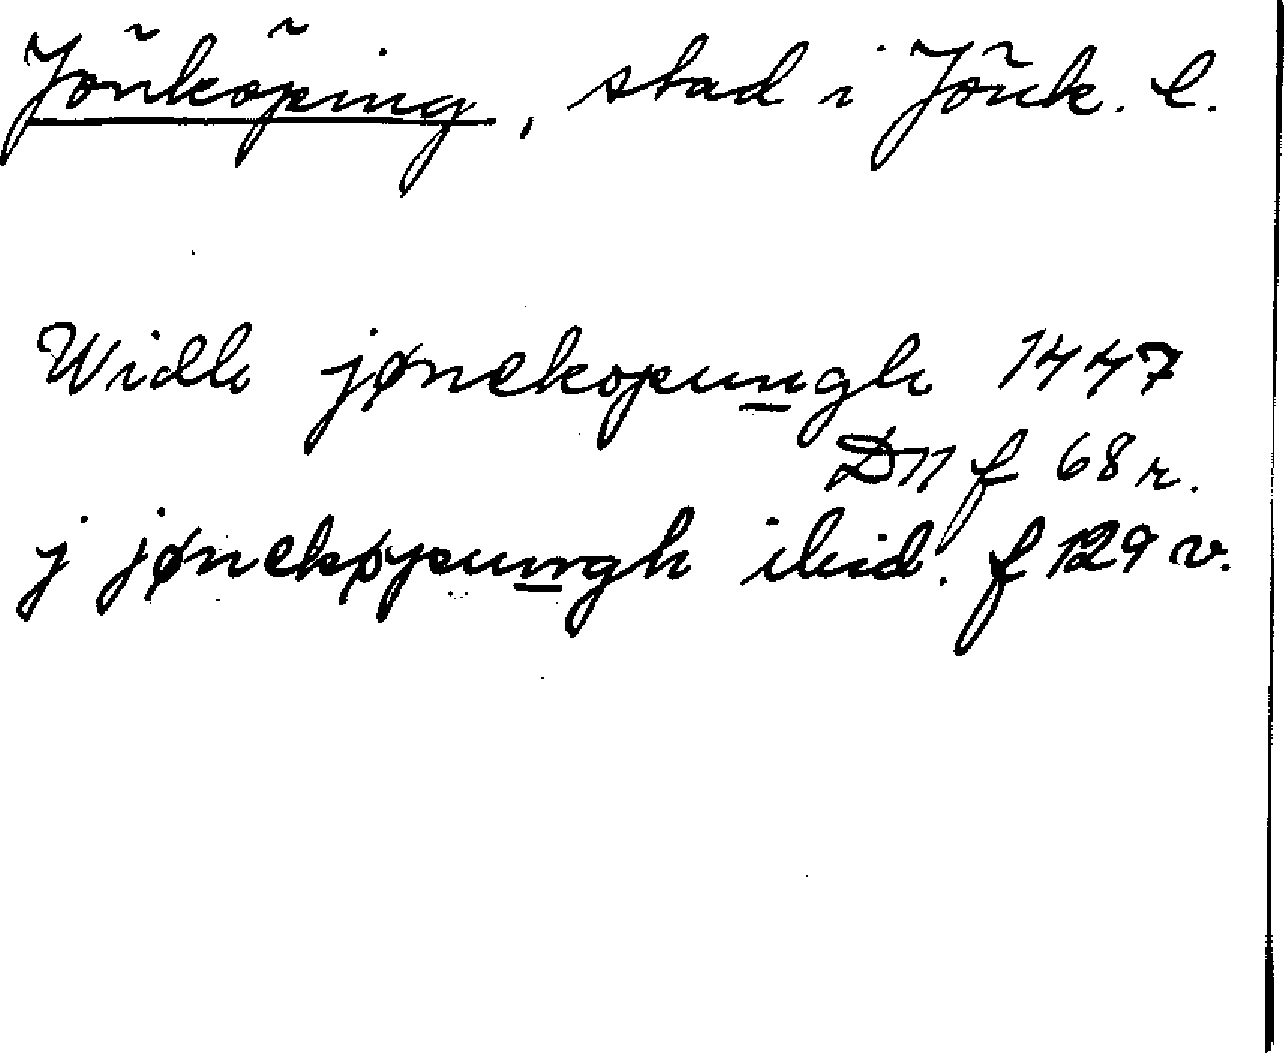 Jönköping, stad i Jönk. l.
Widh jønekopungh 1447
D11 f 68 r.
j jønekøpungh ibid. f 129 v.